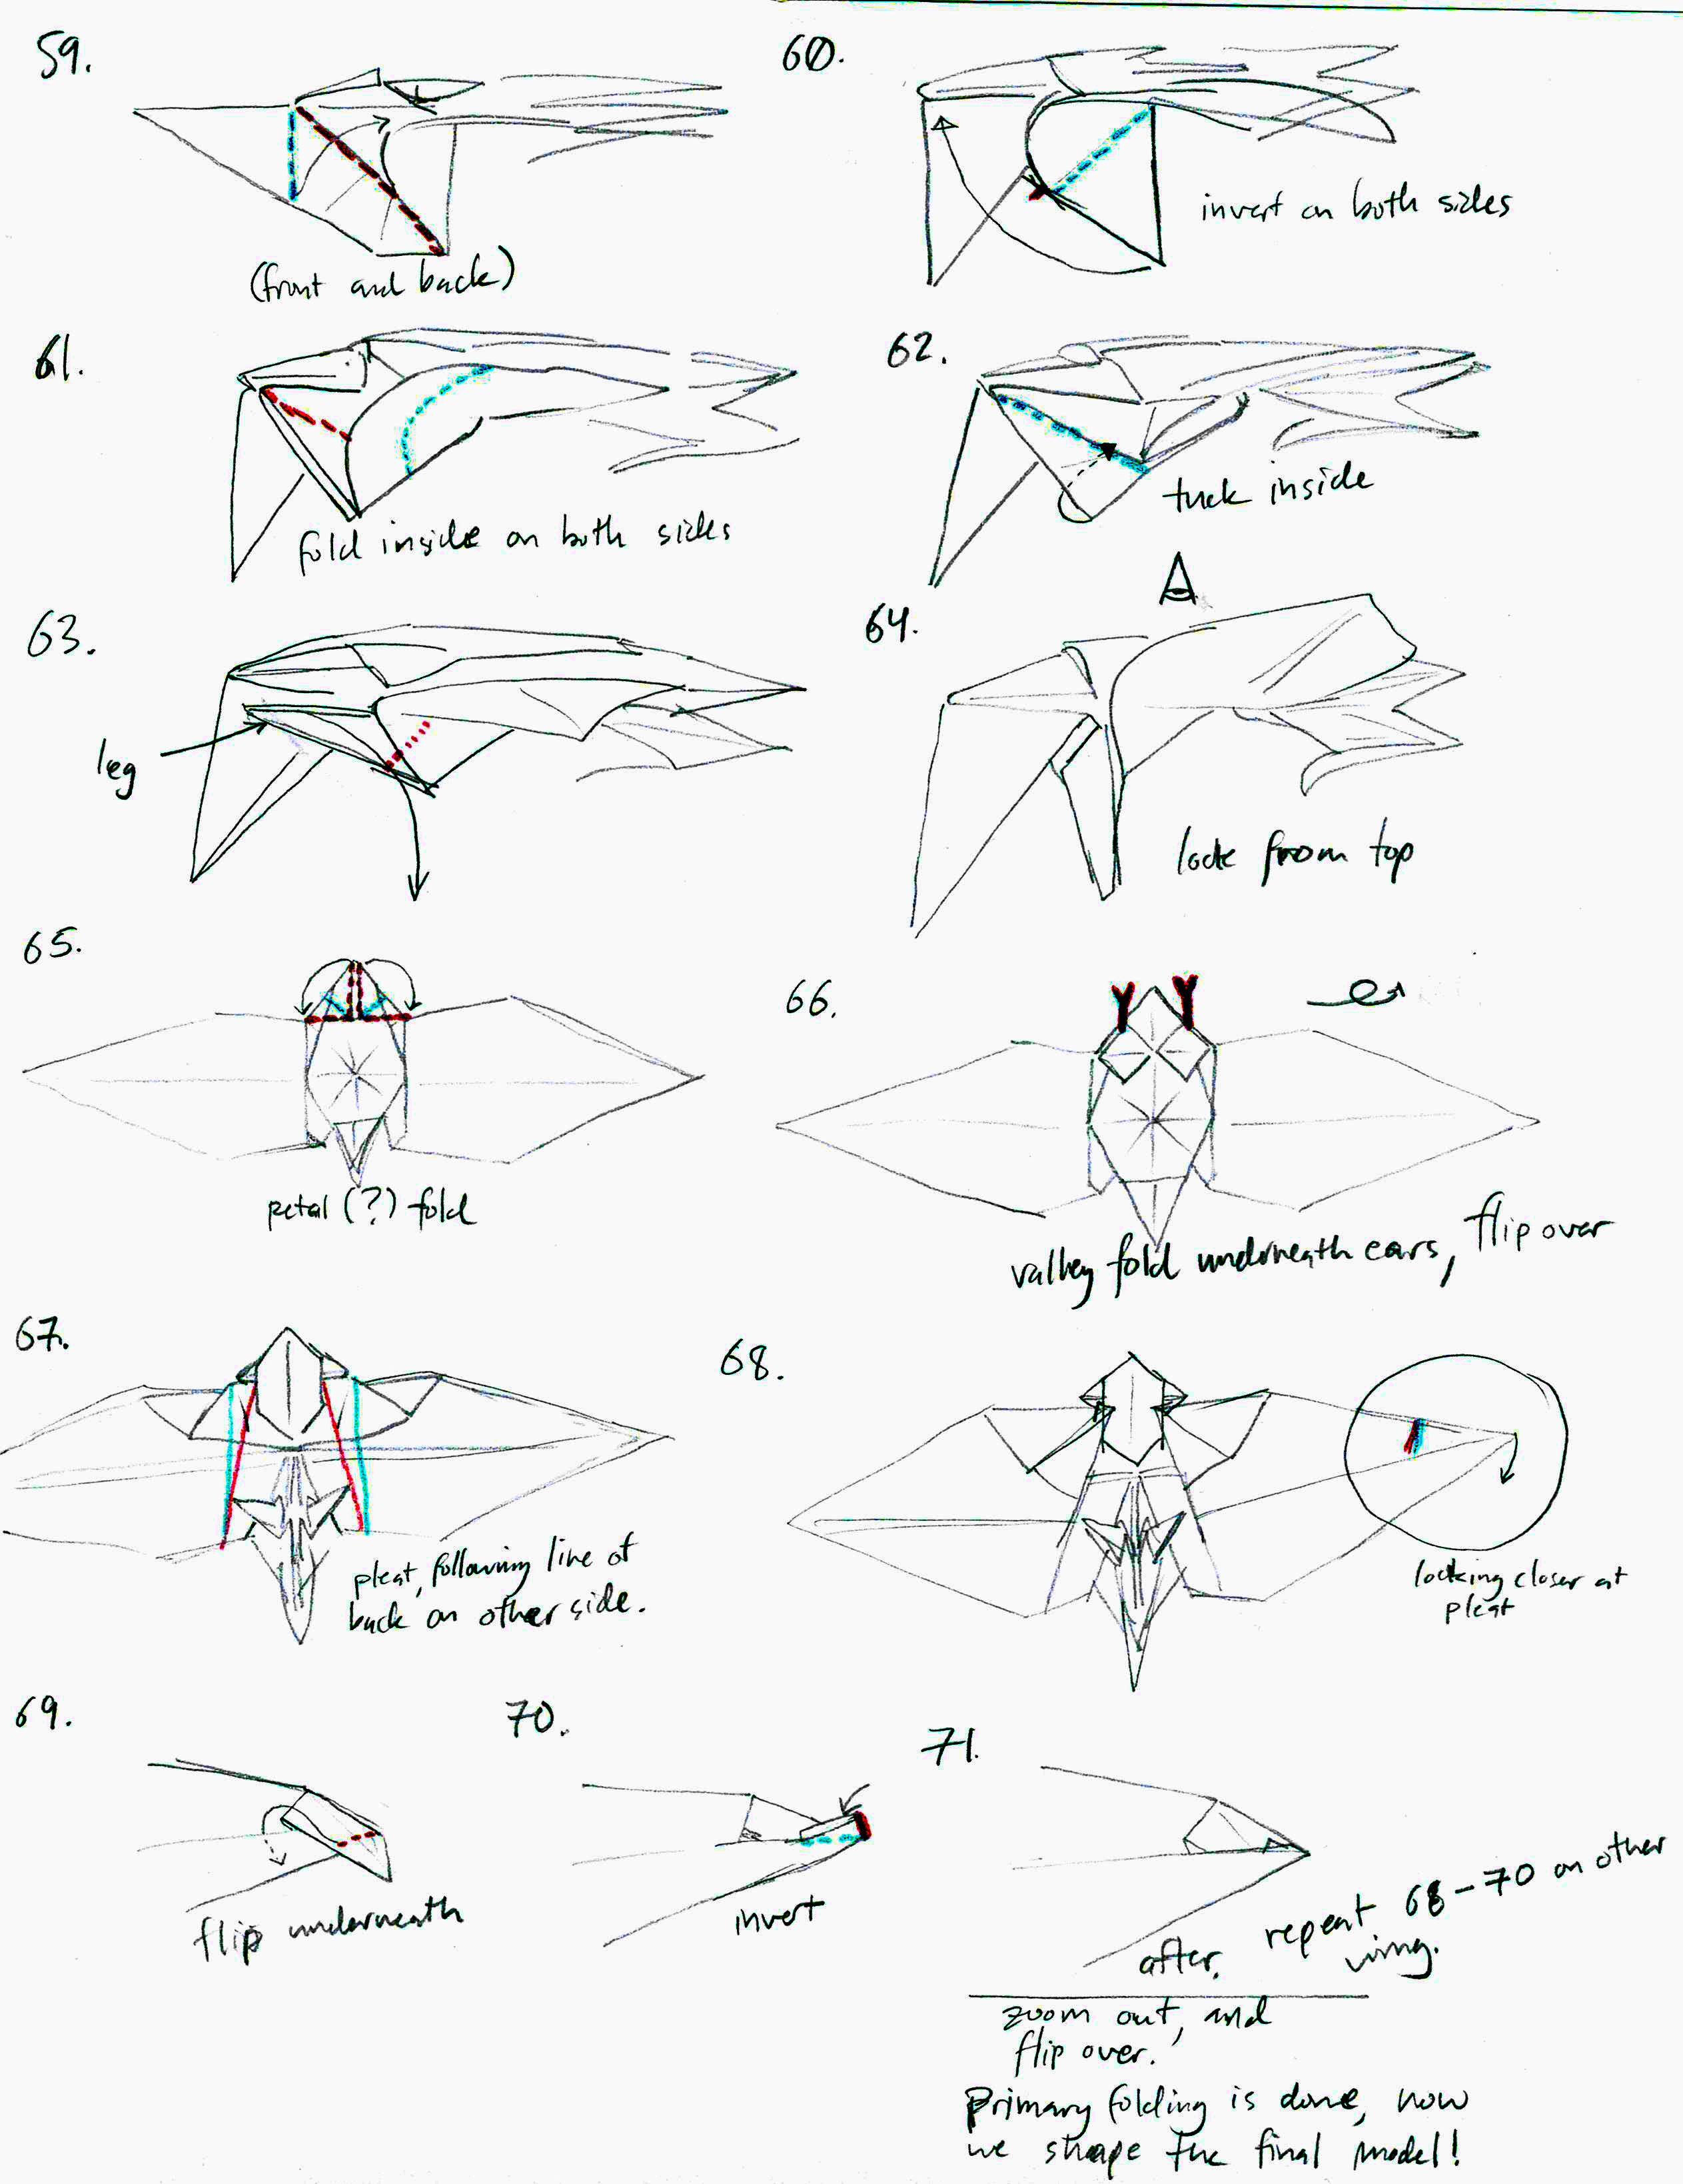 59.
(front and back)
60.
invert on both sides
61.
fold inside on both sides
62.
tuck inside
63.
leg
64.
look from top
65.
petal (?) fold
66.
valley fold underneath ears, flip over
67.
pleat, following line of
back on other side.
68.
looking closer at
pleat
69.
flip underneath
70.
invert
71.
after.
repeat 68-70 on other
wing.
zoom out, and
flip over.
Primary folding is done, now
we shape the final model!